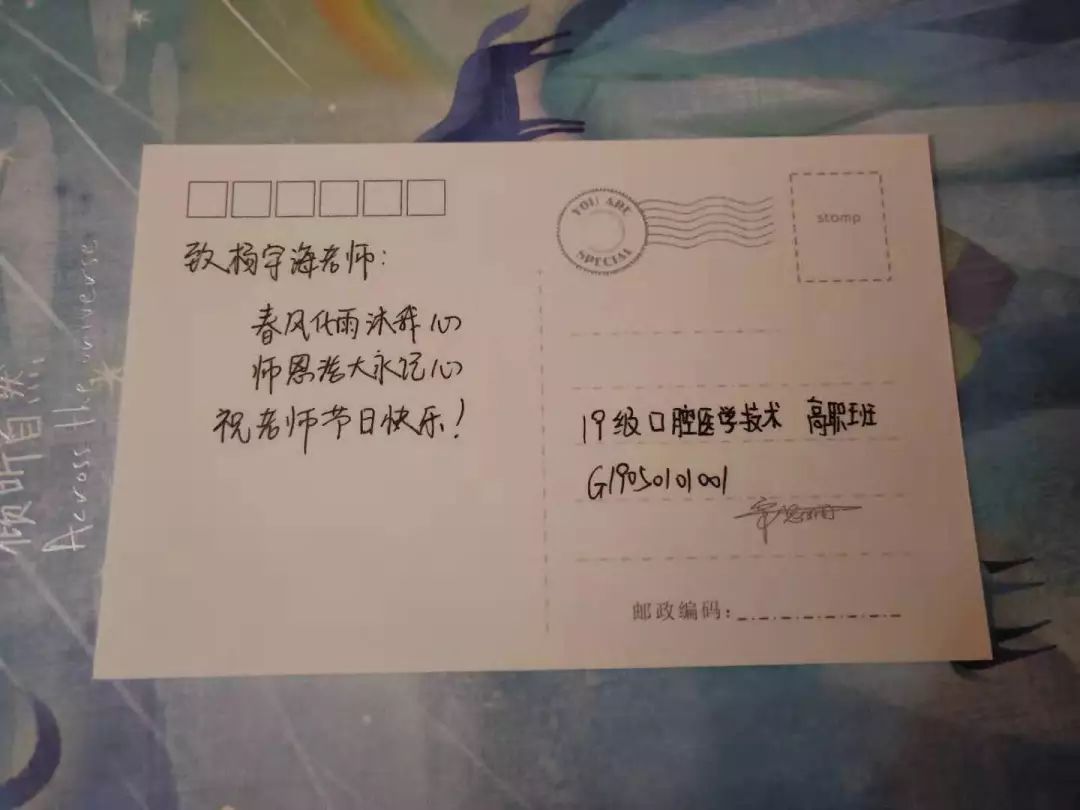 致杨宇海老师:
春风化雨沐我心
师恩浩大永记心
祝老师节日快乐!
YOU ARE
SPECIAL
stomp
19级口腔医学技术 高职班
G19050101001
邮政编码:
倾听自然
Across the universe